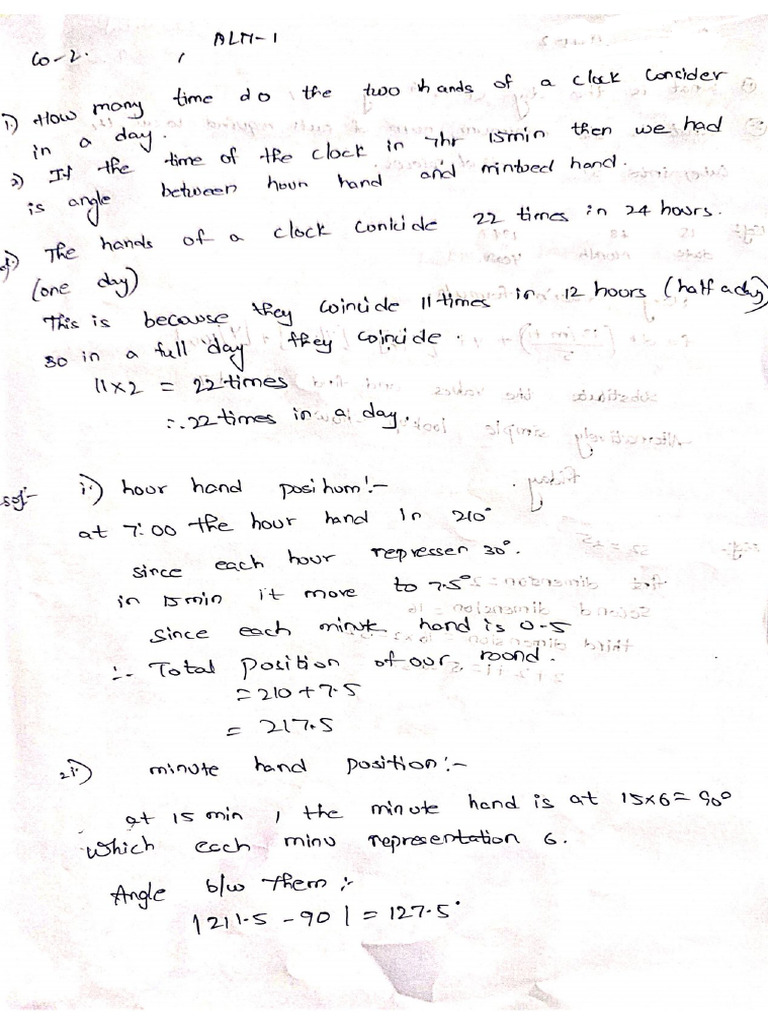 ALM-1
CO-2.
1.) How many time do the two hands of a clock Consider
in a day.
2) If the time of the clock in 7hr 15min then we had
is angle between hour hand and mintued hand.
The hands of a clock Conicide 22 times in 24 hours.
(one day)
This is because they Coincide 11times in 12 hours (half a day)
so in a full day they coincide.
11x2 = 22times
∴ 22times in a day.
Sol:- i.) hour hand positium:-
at 7:00 the hour hand in 210°
since each hour represser 30°.
in 15min it move to 7.5°
Since each minute hand is 0.5
∴ Total position of our roond.
= 210+7.5
= 217.5
2i.) minute hand position:-
at 15 min, the minute hand is at 15x6= 90°
which each minu representation 6.
Angle b/w them :-
|211.5 - 90| = 127.5°